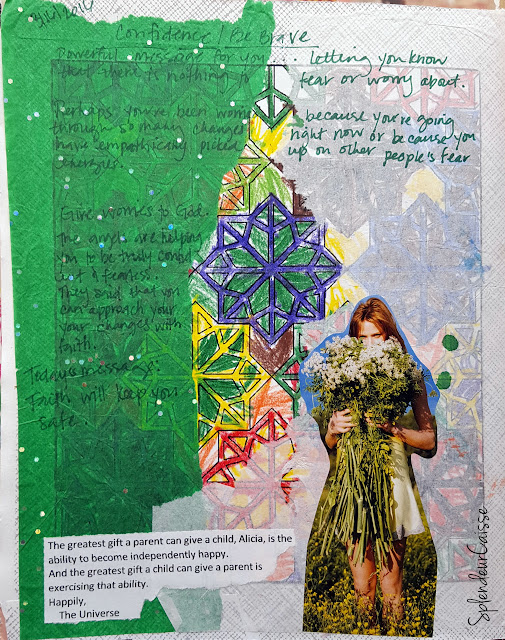 Confidence / Be Brave
Powerful message for you... letting you know
that there is nothing to fear or worry about.
Perhaps you've been worried because you're going
through so many changes right now or because you
have empathically picked up on other people's fear
energies.
Give worries to God.
The angels are helping
you to be truly confid
ent & fearless.
They said that you
can approach your
your changes with
faith.
Today's message:
Faith will keep you
safe.
The greatest gift a parent can give a child, Alicia, is the
ability to become independently happy.
And the greatest gift a child can give a parent is
exercising that ability.
Happily,
The Universe
SplendeurCaisse